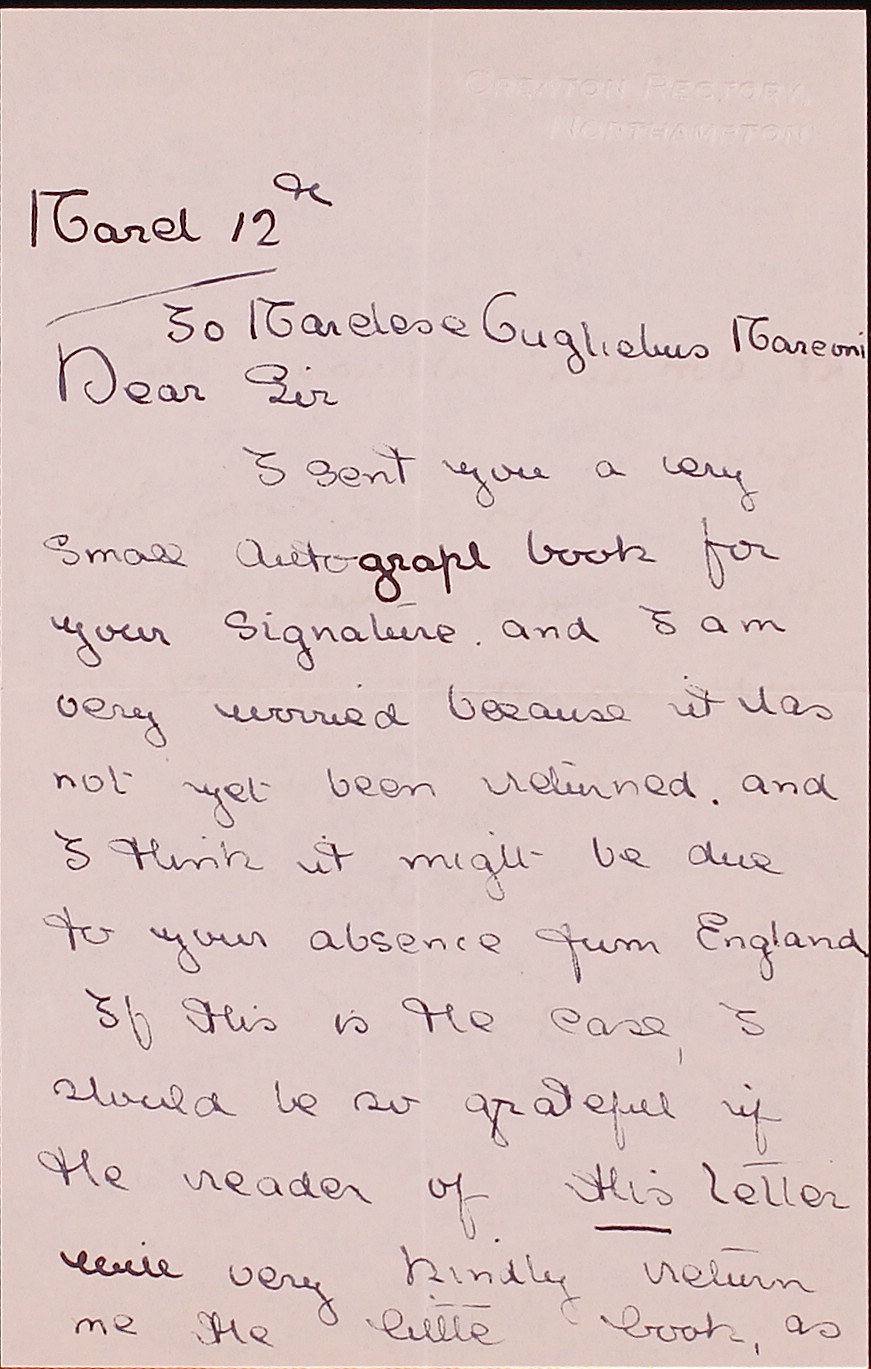 CREATON RECTORY,
NORTHAMPTON
March 12th
To Marchese Guglielmo Marconi
Dear Sir
I sent you a very
small autograph book for
your signature. and I am
very worried because it has
not yet been returned. and
I think it might be due
to your absence from England
If this is the case, I
should be so grateful if
the reader of this letter
will very kindly return
me the little book, as